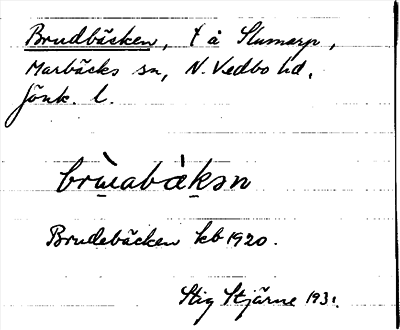 Brudbäcken, t å Slumarp,
Marbäcks sn, N. Vedbo hd,
Jönk. l.
Brudebäcken kb 1920.
Stig Stjärne 1931.